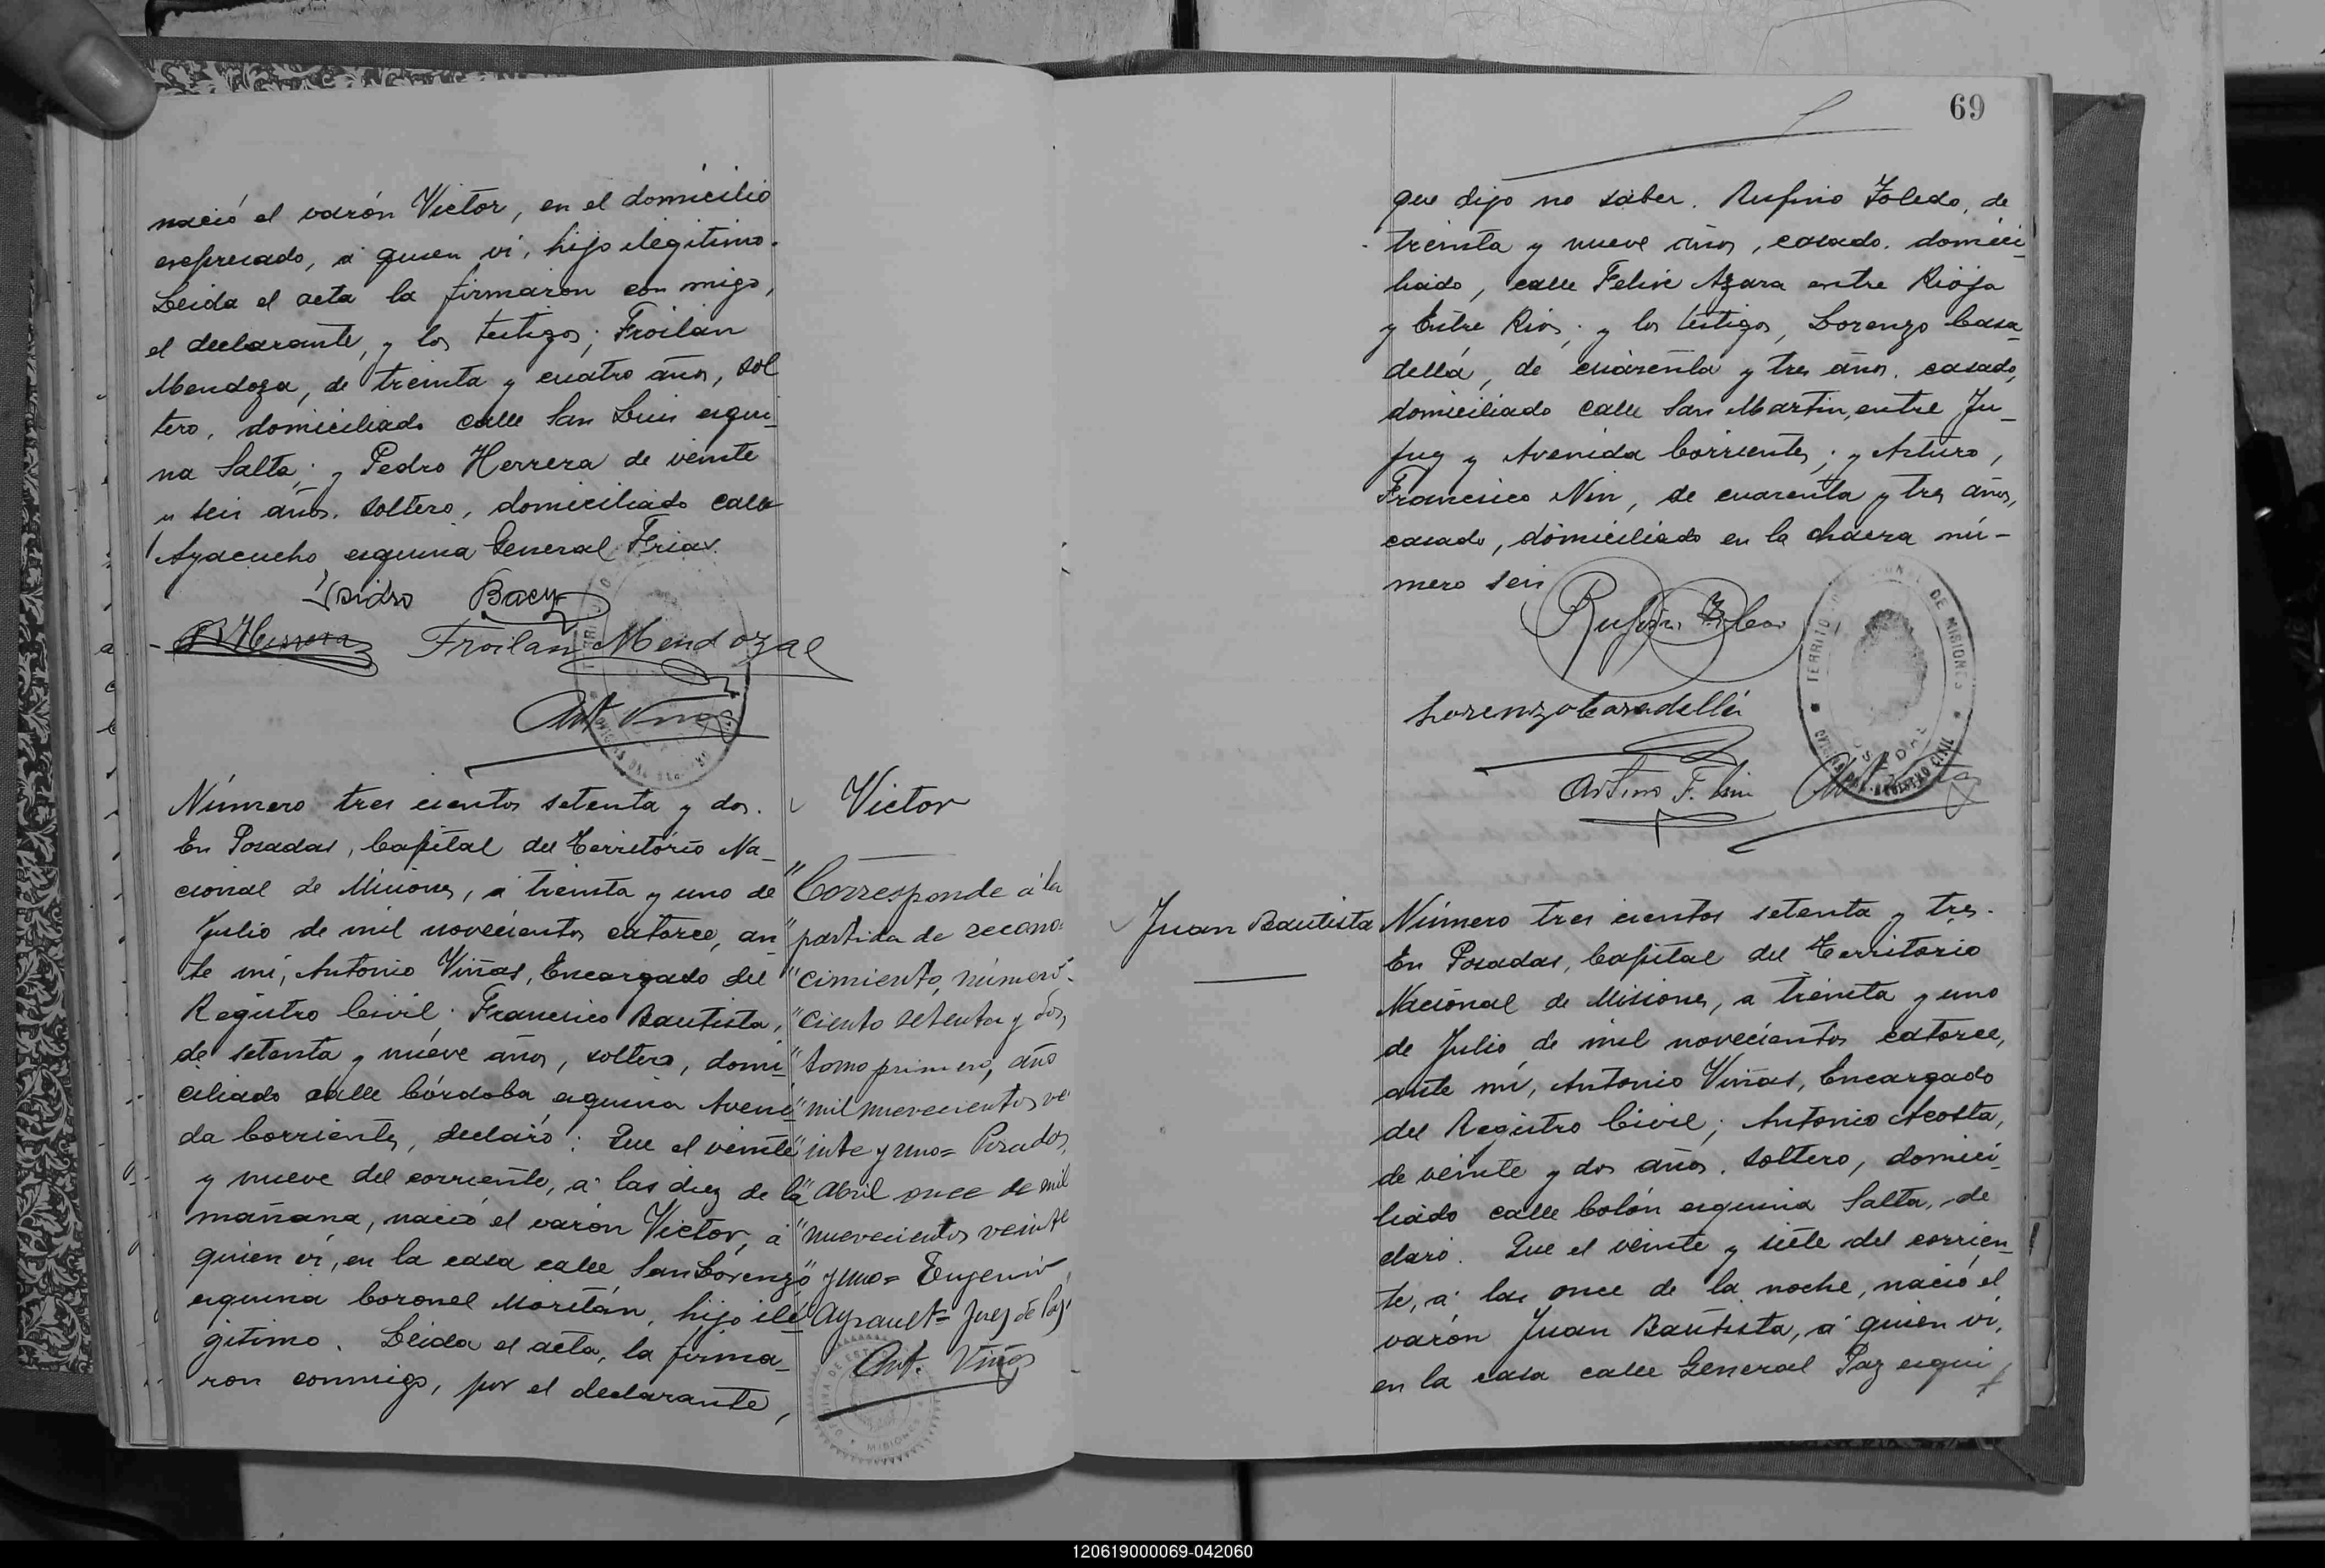 nació el varón Victor, en el domicilio
expresado, á quien ví, hijo ilegitimo.
Leida el acta la firmaron con migo,
el declarante, y los testigos; Froilán
Mendoza, de treinta y cuatro años, sol
tero, domiciliado calle San Luis esqui_
na Salta; y Pedro Herrera de veinte
y seis años. soltero, domiciliado calle
Ayacucho esquina General Frias.
Isidro Baez
P. Herrera Froilán Mendoza
Ant. Viñas
Número tres cientos setenta y dos.
En Posadas, Capital del Territorio Na_
cional de Misiones, á treinta y uno de
Julio de mil novecientos catorce, an
te mí, Antonio Viñas, Encargado del
Registro Civil; Francisco Bautista,
de setenta y nueve años, soltero, domi_
ciliado calle Córdoba esquina Aveni
da Corrientes, declaró: Que el veinte
y nueve del corriente, á las diez de la
mañana, nació el varón Victor, á
quien ví, en la casa calle San Lorenzo
esquina Coronel Moritán, hijo ile_
gitimo. Leida el acta, la firma_
ron conmigo, por el declarante,
Victor
"Corresponde á la
"partida de recono-
"cimiento, número
"ciento setenta y dos,
"tomo primero, año
"mil nuevecientos ve
"inte y uno= Posadas,
"Abril once de mil
"nuevecientos veinte
"y uno= Eugenio
"Ayrault= Juez de Paz"
Ant. Viñas
MISIONES
69
que dijo no saber. Rufino Toledo, de
treinta y nueve años, casado. domici_
liado, calle Felix Azara entre Rioja
y Entre Rios; y los testigos, Lorenzo Casa_
dellá, de cuarenta y tres años. casado,
domiciliado calle San Martin, entre Ju_
juy y Avenida Corrientes; y Arturo,
Francisco Nin, de cuarenta y tres años,
casado, domiciliado en la chacra nú-
mero seis
Rufino Toledo
Lorenzo Casadellá
Arturo F. Nin
TERRITORIO NACIONAL DE MISIONES
OFICINA DEL REGISTRO CIVIL
POSADAS
Juan Bautista
Número tres cientos setenta y tres.
En Posadas, Capital del Territorio
Nacional de Misiones, a treinta y uno
de Julio de mil novecientos catorce,
ante mí, Antonio Viñas, Encargado
del Registro Civil; Antonio Acosta,
de veinte y dos años. soltero, domici_
liado calle Colón esquina Salta, de
claró. Que el veinte y siete del corrien_
te, á las once de la noche, nació el
varón Juan Bautista, á quien ví,
en la casa calle General Paz esqui
120619000069-042060